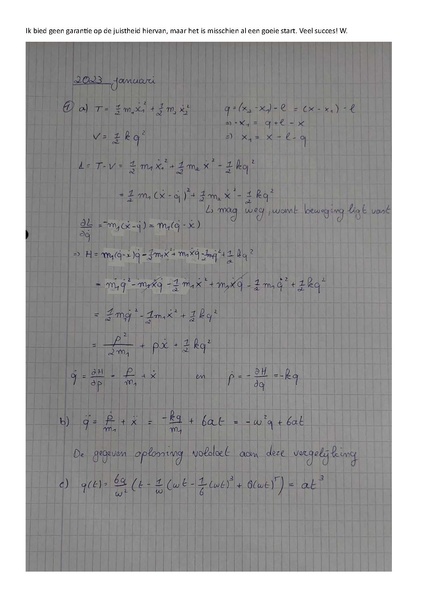 Ik bied geen garantie op de juistheid hiervan, maar het is misschien al een goeie start. Veel succes! W.
2023 januari
1) a) T = 1/2 m₁ẋ₁² + 1/2 m₂ẋ₂² q = (x₂ - x₁) - l = (x - x₁) - l
⇒ -x₁ = q + l - x
V = 1/2 k q² ⇒ x₁ = x - l - q
L = T - V = 1/2 m₁ẋ₁² + 1/2 m₂ẋ² - 1/2 kq²
= 1/2 m₁(ẋ - q̇)² + 1/2 m₂ẋ² - 1/2 kq²
↳ mag weg, want beweging ligt vast
∂L/∂q̇ = -m₁(ẋ - q̇) = m₁(q̇ - ẋ)
⇒ H = m₁(q̇ - ẋ)q̇ - 1/2 m₁ẋ² + m₁ẋq̇ - 1/2 m₁q̇² + 1/2 kq²
= m₁q̇² - m₁ẋq̇ - 1/2 m₁ẋ² + m₁ẋq̇ - 1/2 m₁q̇² + 1/2 kq²
= 1/2 mq̇² - 1/2 m₁ẋ² + 1/2 kq²
= p²/2m₁ + pẋ + 1/2 kq²
q̇ = ∂H/∂p = p/m₁ + ẋ en ṗ = -∂H/∂q = -kq
b) q̈ = ṗ/m₁ + ẍ = -kq/m₁ + 6at = -ω²q + 6at
De gegeven oplossing voldoet aan deze vergelijking
c) q(t) = 6a/ω² (t - 1/ω (ωt - 1/6 (ωt)³ + O(ωt)⁵) = at³